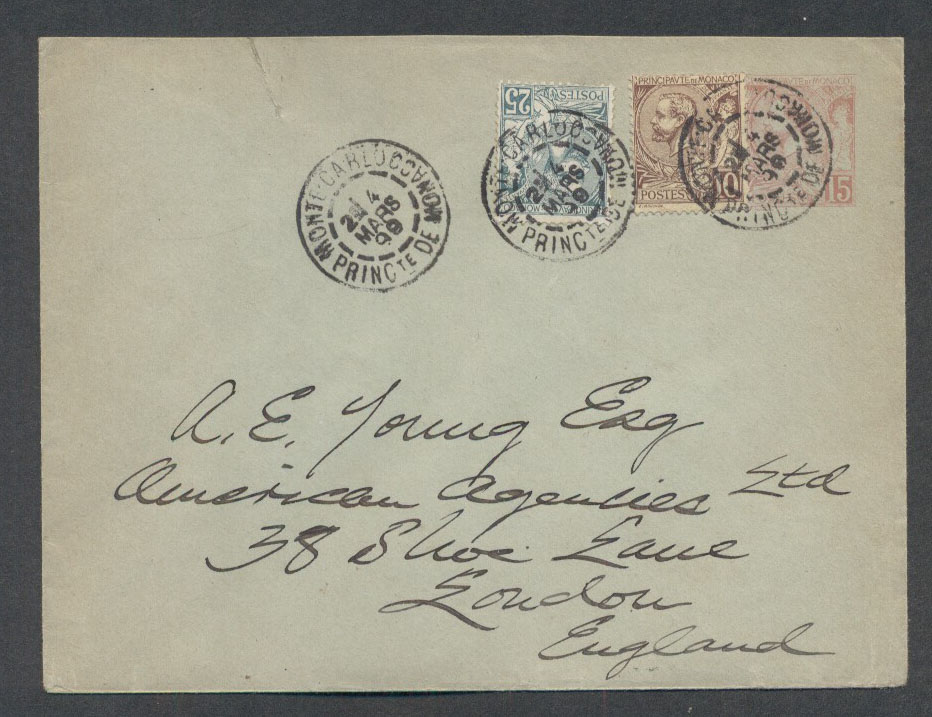 25 POSTES
PRINCIPAUTE DE MONACO
POSTES 10
PRINCIPAUTE DE MONACO
15
MONTE-CARLO MONACO
4
MARS
PRINCTE DE
MONTE-CARLO MONACO
4
MARS
PRINCTE DE
MONTE-CARLO MONACO
4
MARS
PRINCTE DE
A. E. Young Esq
American Agencies Ltd
38 Shoe Lane
London
England